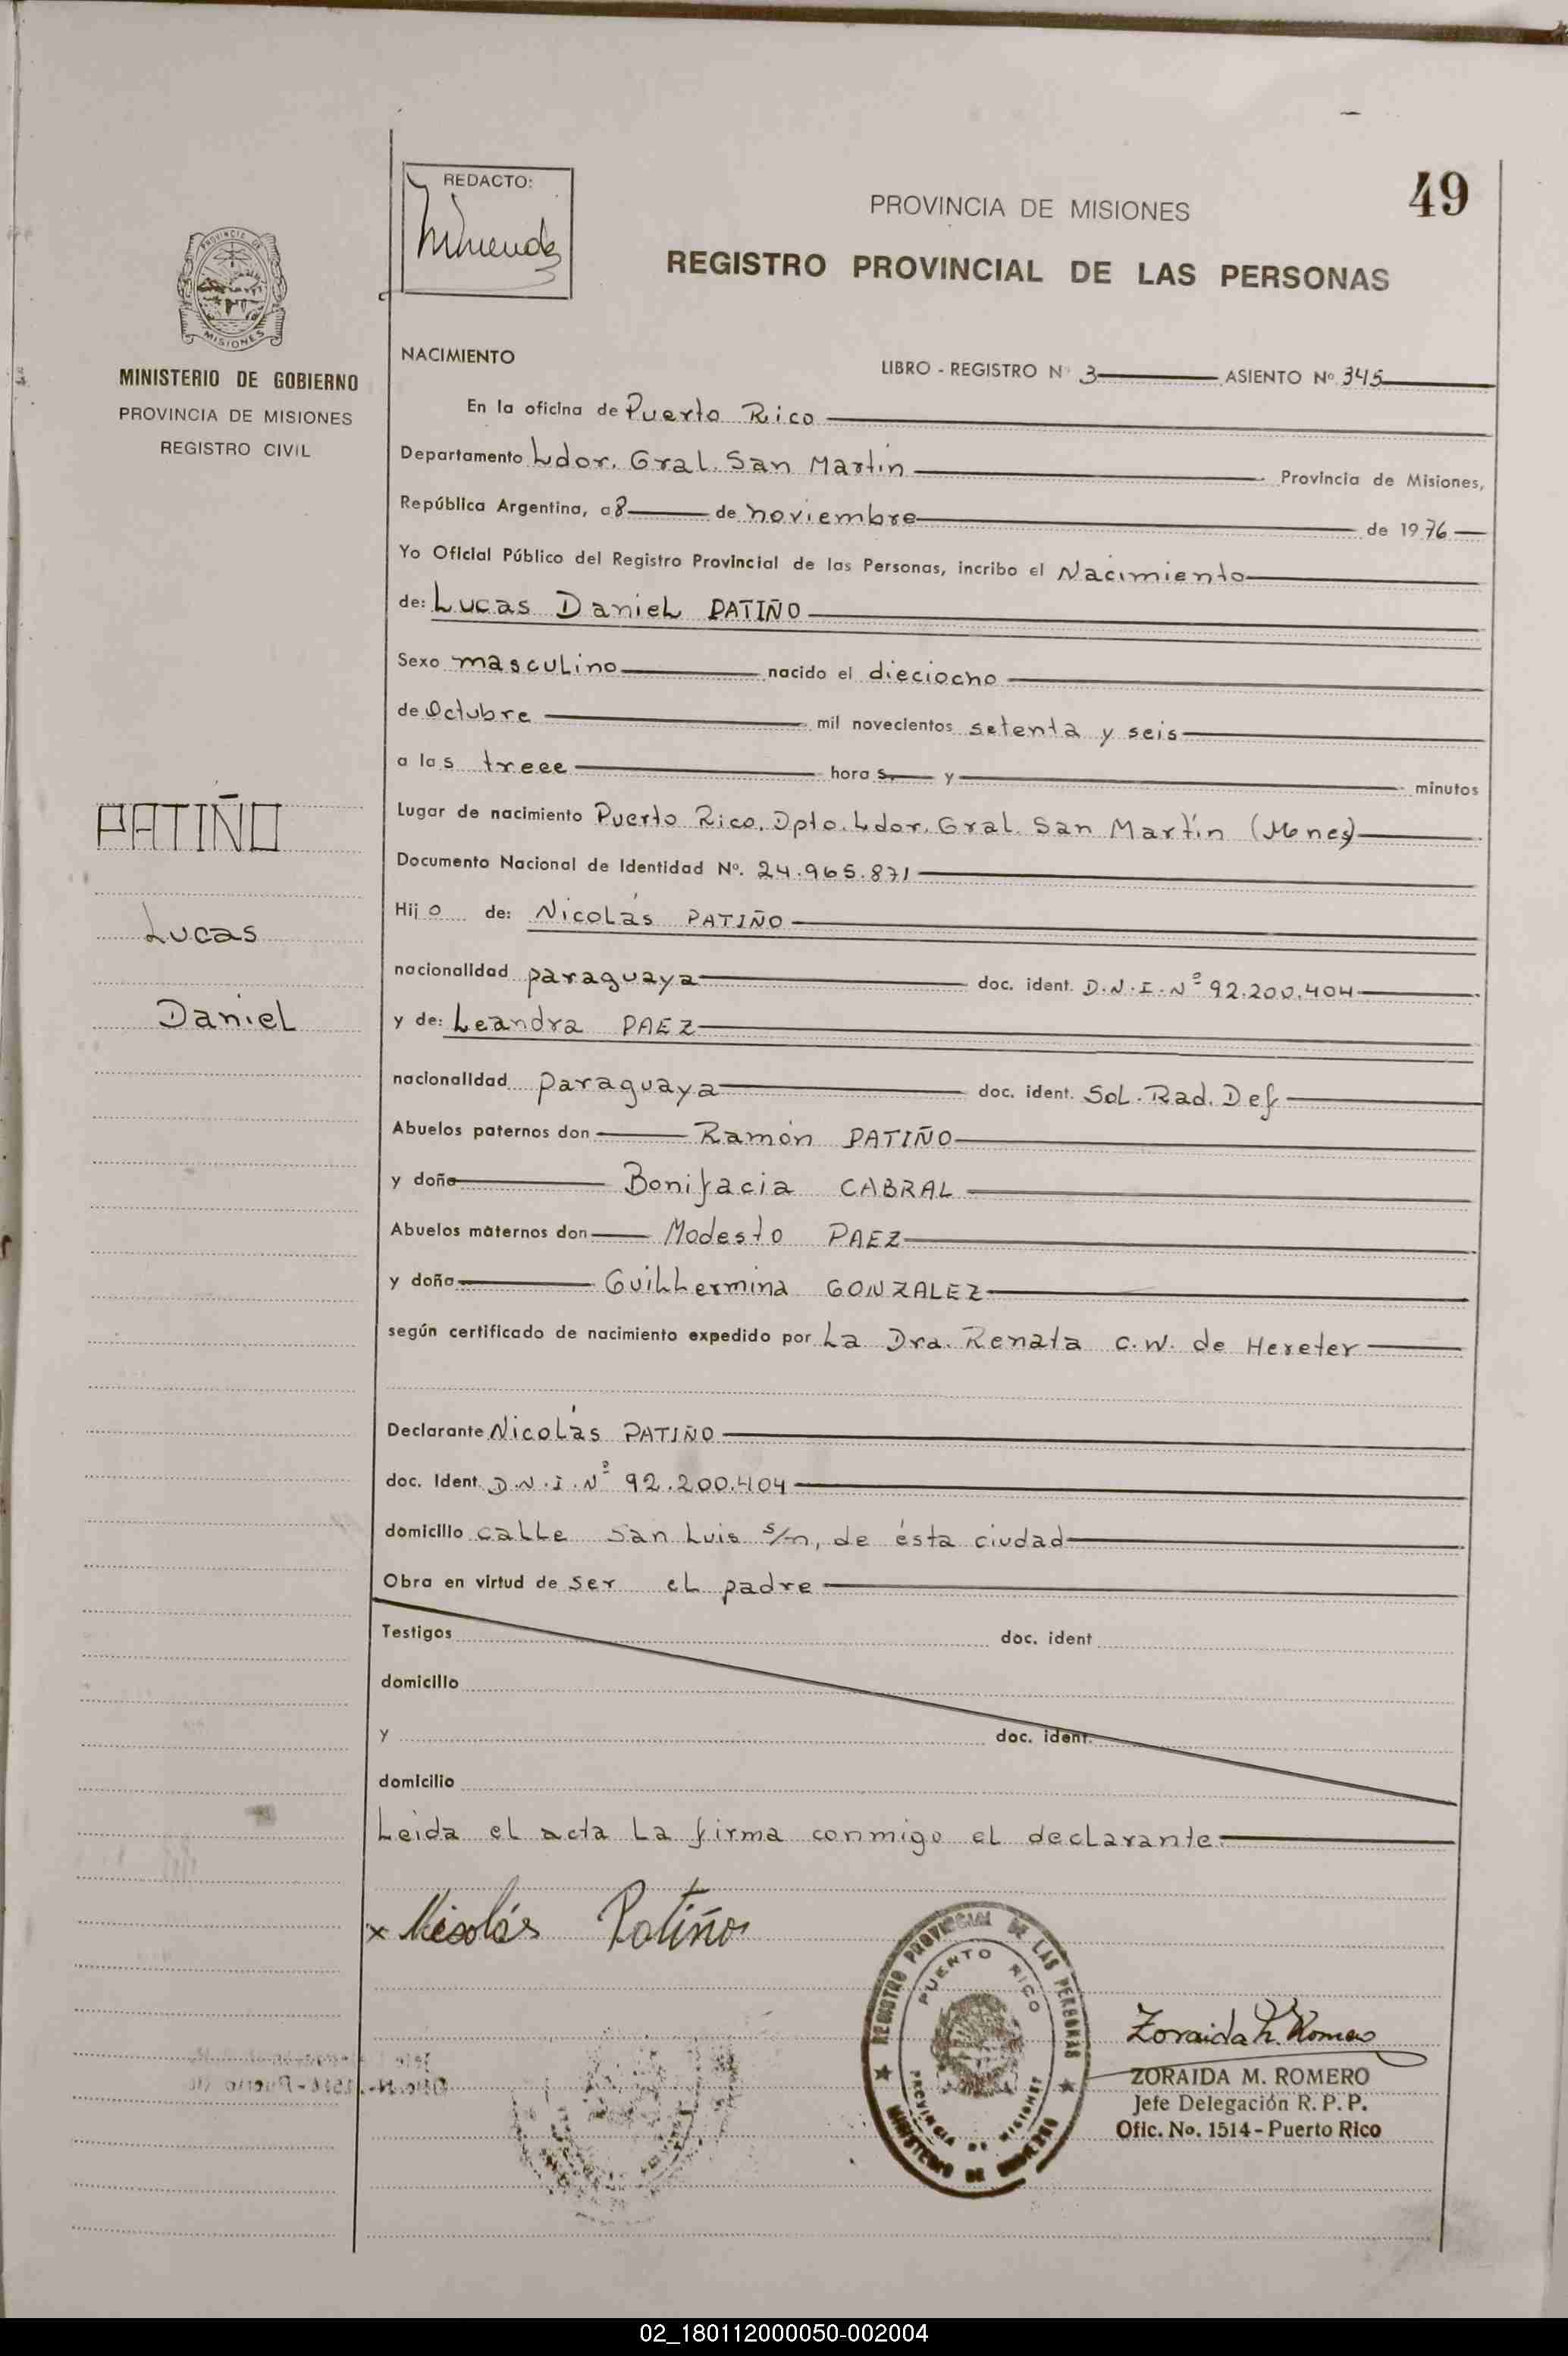 49
REDACTO:
PROVINCIA DE MISIONES
REGISTRO PROVINCIAL DE LAS PERSONAS
PROVINCIA DE
MISIONES
MINISTERIO DE GOBIERNO
PROVINCIA DE MISIONES
REGISTRO CIVIL
NACIMIENTO
LIBRO - REGISTRO Nº 3 ASIENTO Nº 345
En la oficina de Puerto Rico
Departamento Ldor. Gral. San Martín Provincia de Misiones,
República Argentina, a 8 de noviembre de 1976
Yo Oficial Público del Registro Provincial de las Personas, incribo el Nacimiento
de: Lucas Daniel PATIÑO
Sexo masculino nacido el dieciocho
de Octubre mil novecientos setenta y seis
a las trece horas y minutos
Lugar de nacimiento Puerto Rico, Dpto. Ldor. Gral. San Martín (Mnes)
Documento Nacional de Identidad Nº. 24.965.871
Hijo de: Nicolás PATIÑO
nacionalidad paraguaya doc. ident. D.N.I. Nº 92.200.404
y de: Leandra PAEZ
nacionalidad paraguaya doc. ident. Sol. Rad. Def
Abuelos paternos don Ramón PATIÑO
y doña Bonifacia CABRAL
Abuelos maternos don Modesto PAEZ
y doña Guillermina GONZALEZ
según certificado de nacimiento expedido por La Dra. Renata C.W. de Hereter
Declarante Nicolás PATIÑO
doc. Ident. D.N.I. Nº 92.200.404
domicilio calle San Luis s/n, de ésta ciudad
Obra en virtud de ser el padre
Testigos doc. ident
domicilio
y doc. ident.
domicilio
Leída el acta la firma conmigo el declarante
PATIÑO
Lucas
Daniel
x Nicolás Patiño
REGISTRO PROVINCIAL DE LAS PERSONAS
PUERTO RICO
PROVINCIA DE MISIONES
MINISTERIO DE GOBIERNO
Zoraida M. Romero
ZORAIDA M. ROMERO
Jefe Delegación R. P. P.
Ofic. No. 1514 - Puerto Rico
02_180112000050-002004